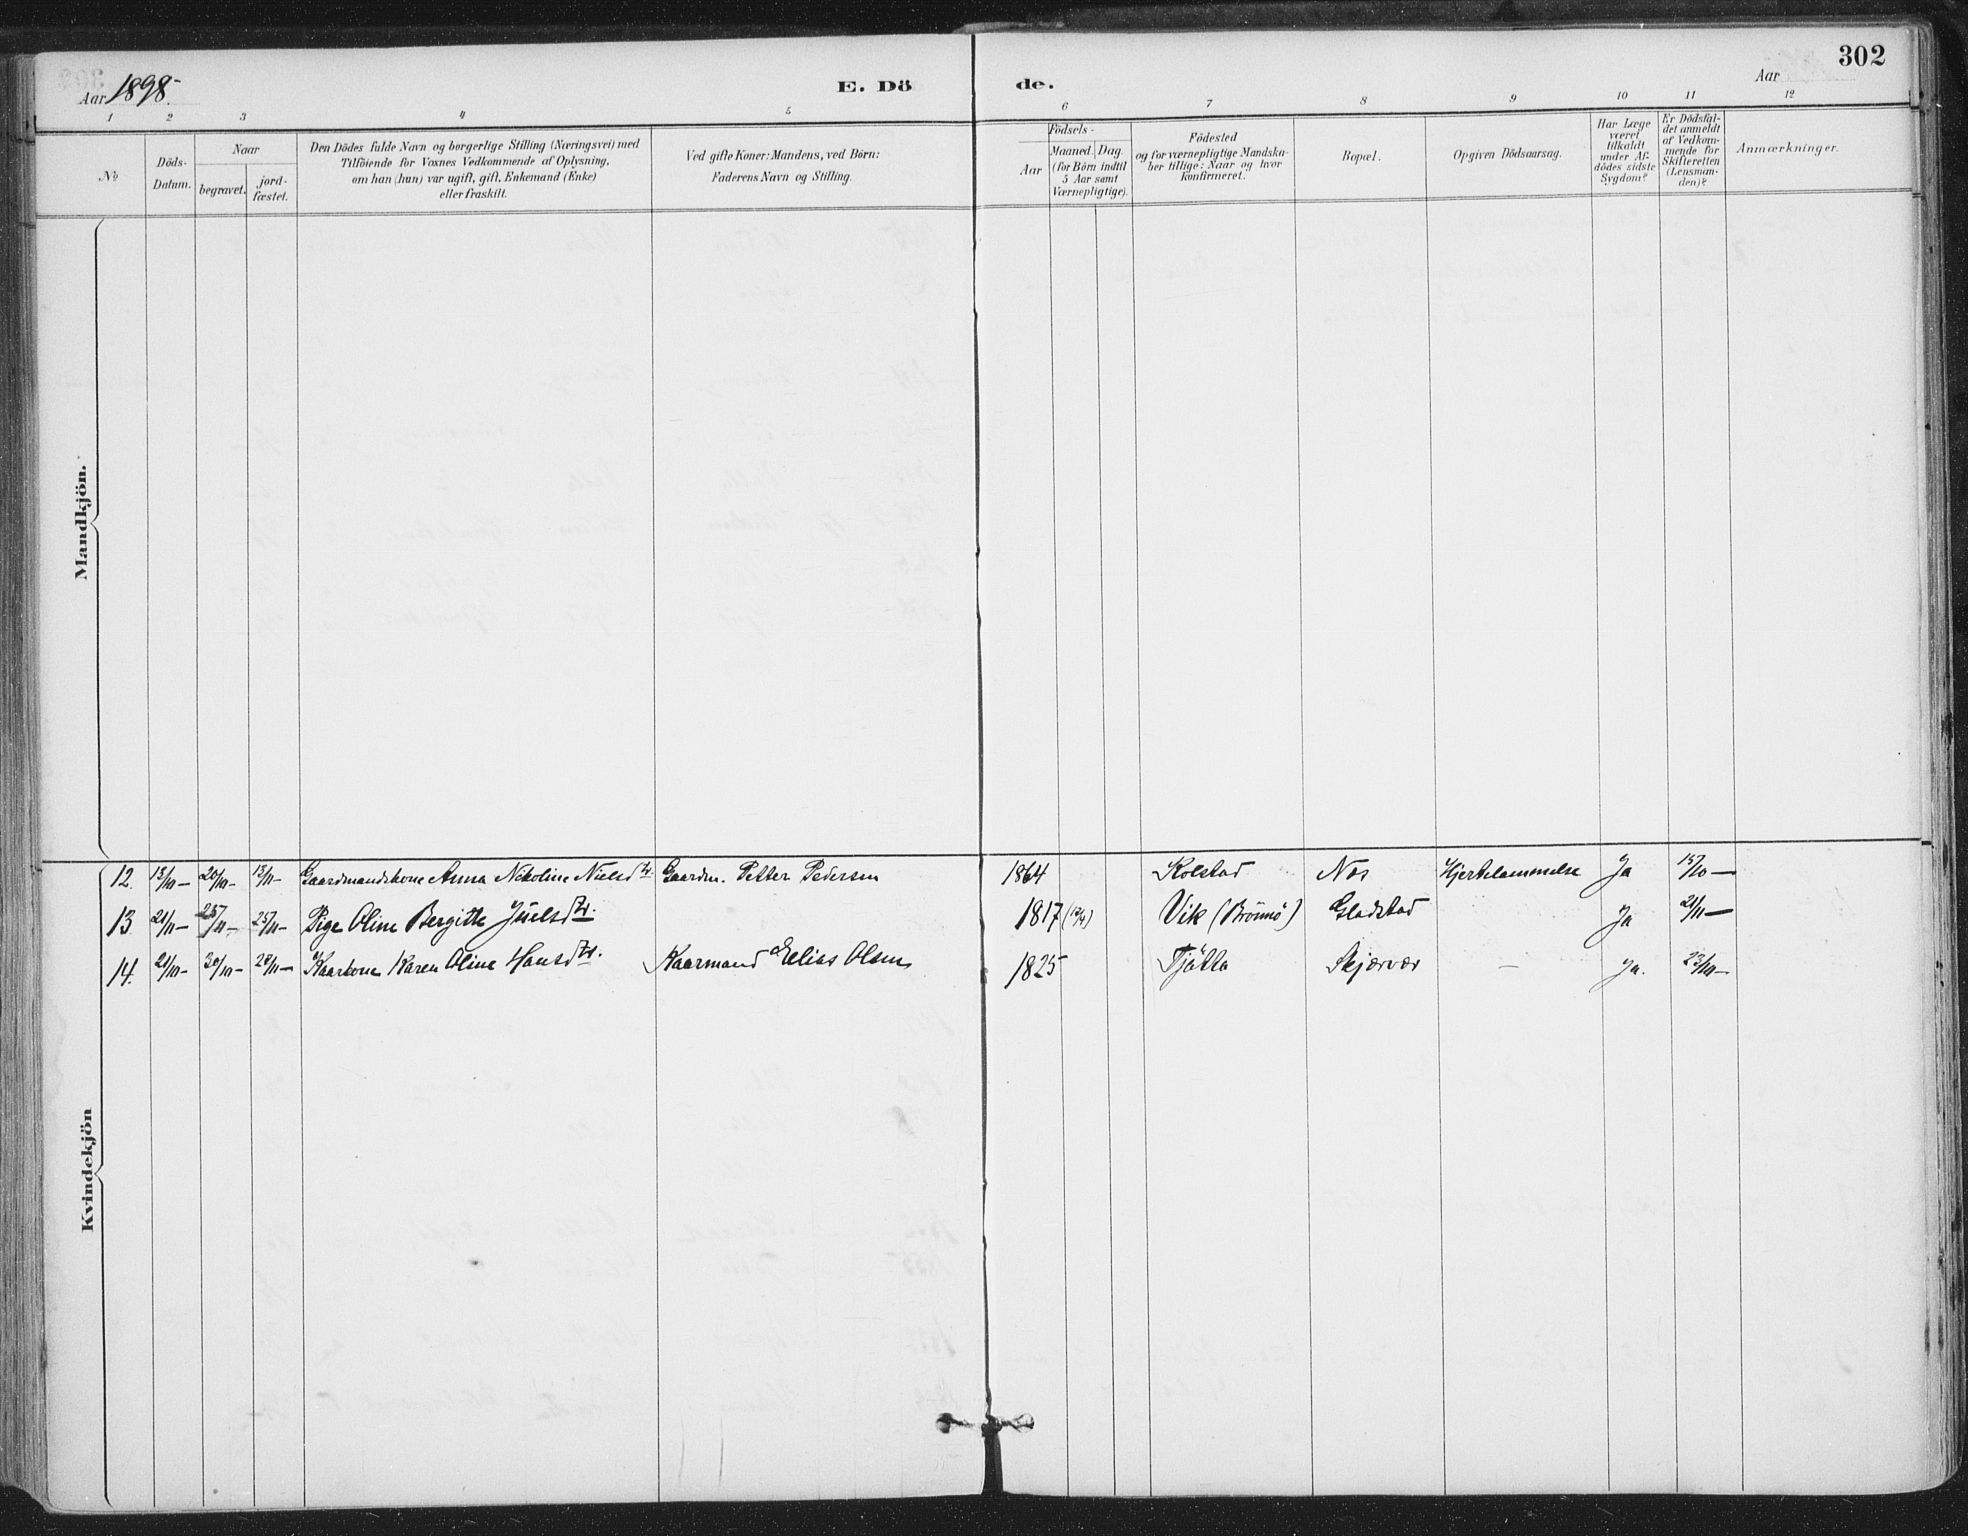 302
Aar 1898.
E. Dö
de.
Aar
1 2 3 4 5 6 7 8 9 10 11 12
No
Döds-
Datum.
Naar
begravet.
jord-
fæstet.
Den Dödes fulde Navn og borgerlige Stilling (Næringsvei) med
Tilföiende for Voxnes Vedkommende af Oplysning,
om han (hun) var ugift, gift, Enkemand (Enke)
eller fraskilt.
Ved gifte Koner: Mandens, ved Börn:
Faderens Navn og Stilling.
Födsels-
Aar
Maaned. Dag.
(for Börn indtil
5 Aar samt
Værnepligtige).
Födested
og for værnepligtige Mandska-
ber tillige: Naar og hvor
konfirmeret.
Bopæl.
Opgiven Dödsaarsag.
Har Læge
været
tilkaldt
under Af-
dödes sidste
Sygdom?
Er Dödsfal-
det anmeldt
af Vedkom-
mende for
Skifteretten
(Lensman-
den)?
Anmærkninger.
Mandkjön.
12. 13/10- 20/10- 13/11- Gaardmandskone Anna Nikoline Nielsdtr. Gaardm. Petter Pedersen 1864 Kolstad Nos Hjertelammelse Ja 15/10-
13. 21/11- 25/11- 25/11- Pige Oline Bergitte Juelsdtr. 1817 Vik (Brönnö) Gladstad Ja 21/11-
14. 21/10- 30/10- 28/11- Kaarkone Karen Oline Hansdtr. Kaarmand Elias Olsen 1825 Tjötta Skjærvær - ja. 23/10-
Kvindekjön